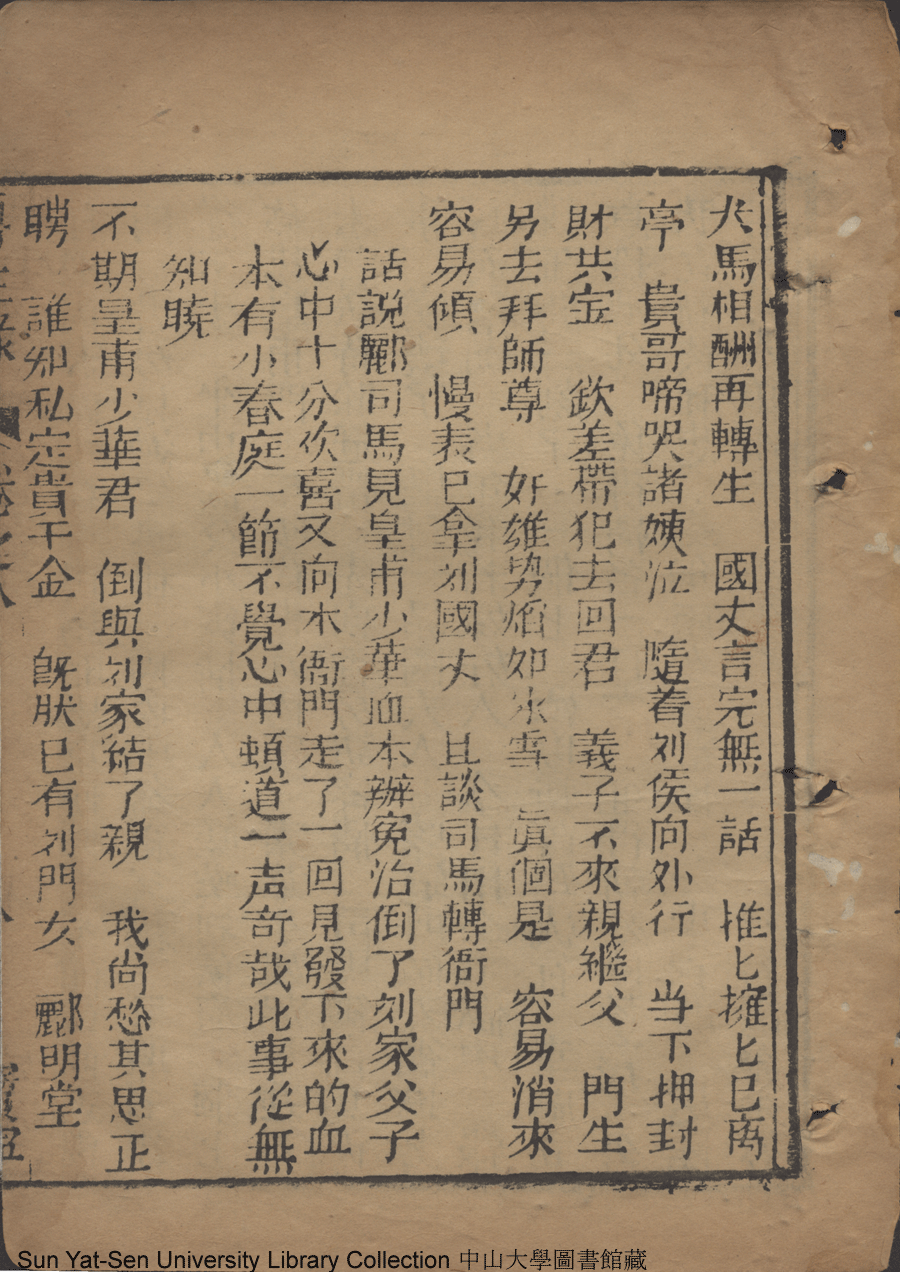 犬馬相酬再轉生　國丈言完無一話　推匕擁匕已离
亭　貴哥啼哭諸姨泣　隨着刘侯向外行　当下押封
財共宝　欽差帶犯去回君　義子不來親繼父　門生
另去拜師尊　奸雄势焰如氷雪　眞個是　容易消來
容易傾　慢表已拿刘國丈　且談司馬轉衙門
話說酈司馬見皇甫少華血本辦寃治倒了刘家父子
心中十分欢喜又向本衙門走了一回見發下來的血
本有小春庭一節不覺心中頓道一声奇哉此事從無
知曉
不期皇甫少華君　倒與刘家結了親　我尚愁其思正
聘　誰知私定貴千金　旣肰已有刘門女　酈明堂
卷之八
Sun Yat-Sen University Library Collection 中山大學圖書館藏